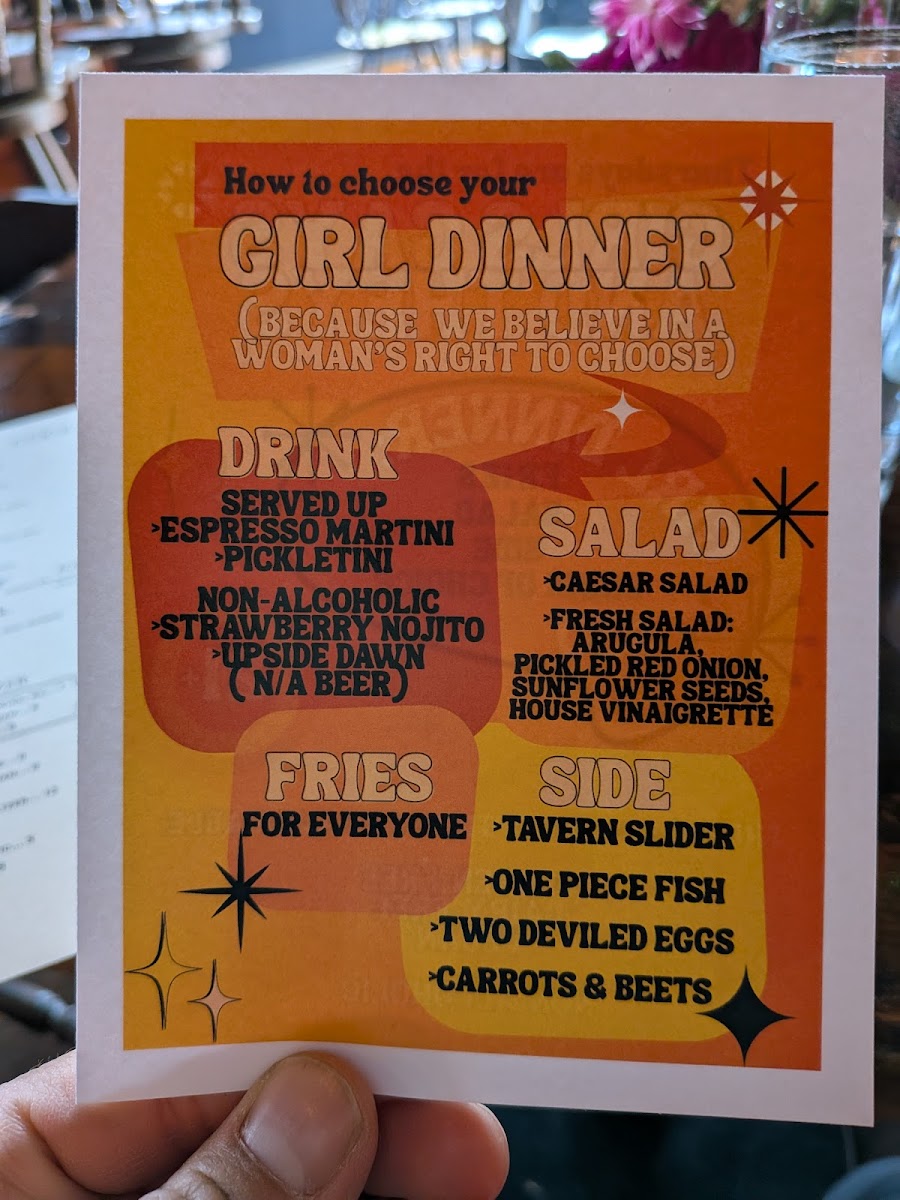 How to choose your
GIRL DINNER
(BECAUSE WE BELIEVE IN A
WOMAN'S RIGHT TO CHOOSE)
DRINK
SERVED UP
>ESPRESSO MARTINI
>PICKLETINI
NON-ALCOHOLIC
>STRAWBERRY NOJITO
>UPSIDE DAWN
( N/A BEER)
SALAD
>CAESAR SALAD
>FRESH SALAD:
ARUGULA,
PICKLED RED ONION,
SUNFLOWER SEEDS,
HOUSE VINAIGRETTE
FRIES
FOR EVERYONE
SIDE
>TAVERN SLIDER
>ONE PIECE FISH
>TWO DEVILED EGGS
>CARROTS & BEETS